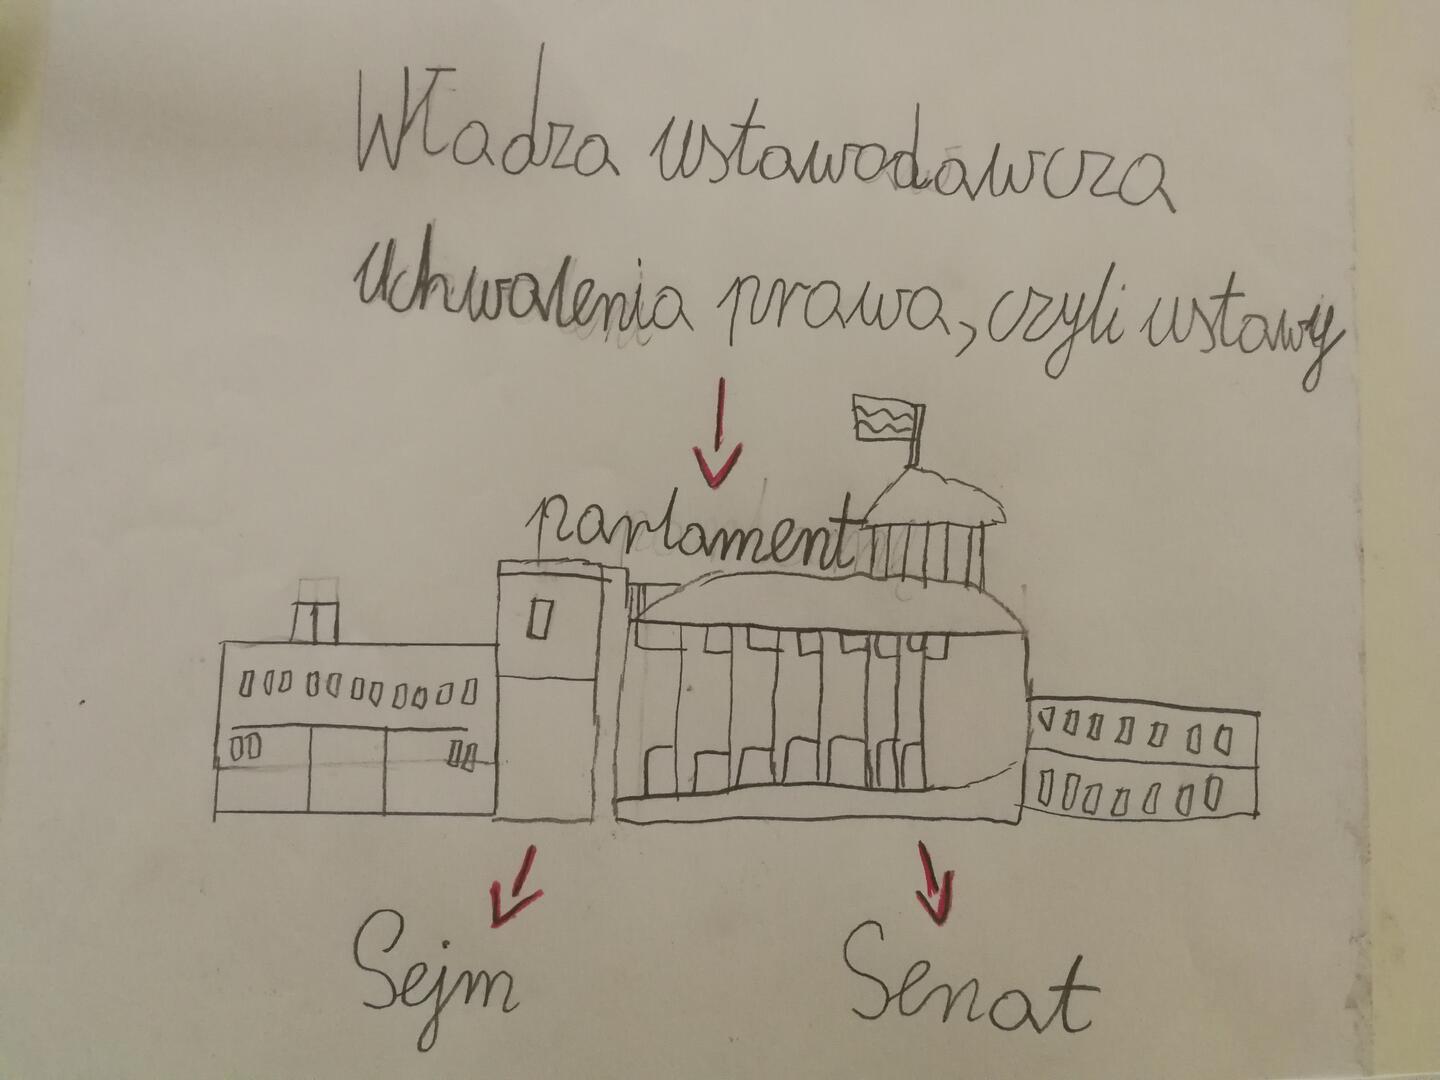 Władza ustawodawcza
uchwalenia prawa, czyli ustawy
parlament
Sejm
Senat